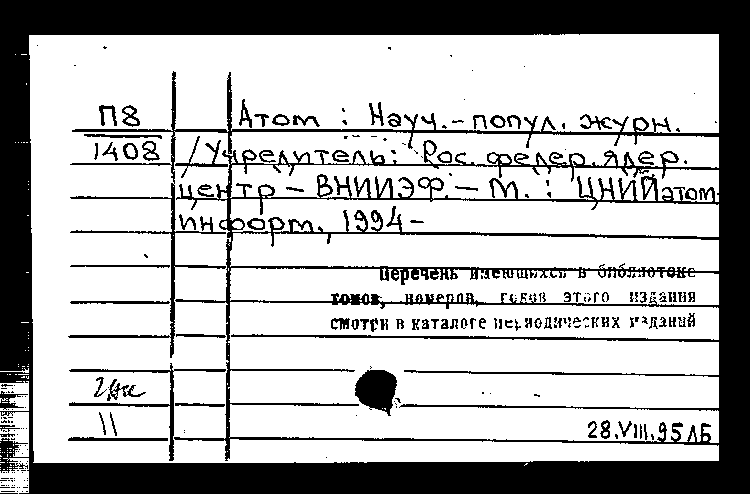 П8 Атом : Науч.-попул. журн.
1408 /Учредитель: Рос. федер. ядер.
центр – ВНИИЭФ. – М. : ЦНИИатом-
информ., 1994 –
Перечень имеющихся в библиотеке
томов, номеров, годов этого издания
смотри в каталоге периодических изданий
11
28.VIII.95 ЛБ